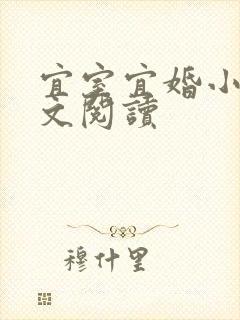 宜室宜婚小
文閱讀
穆什里